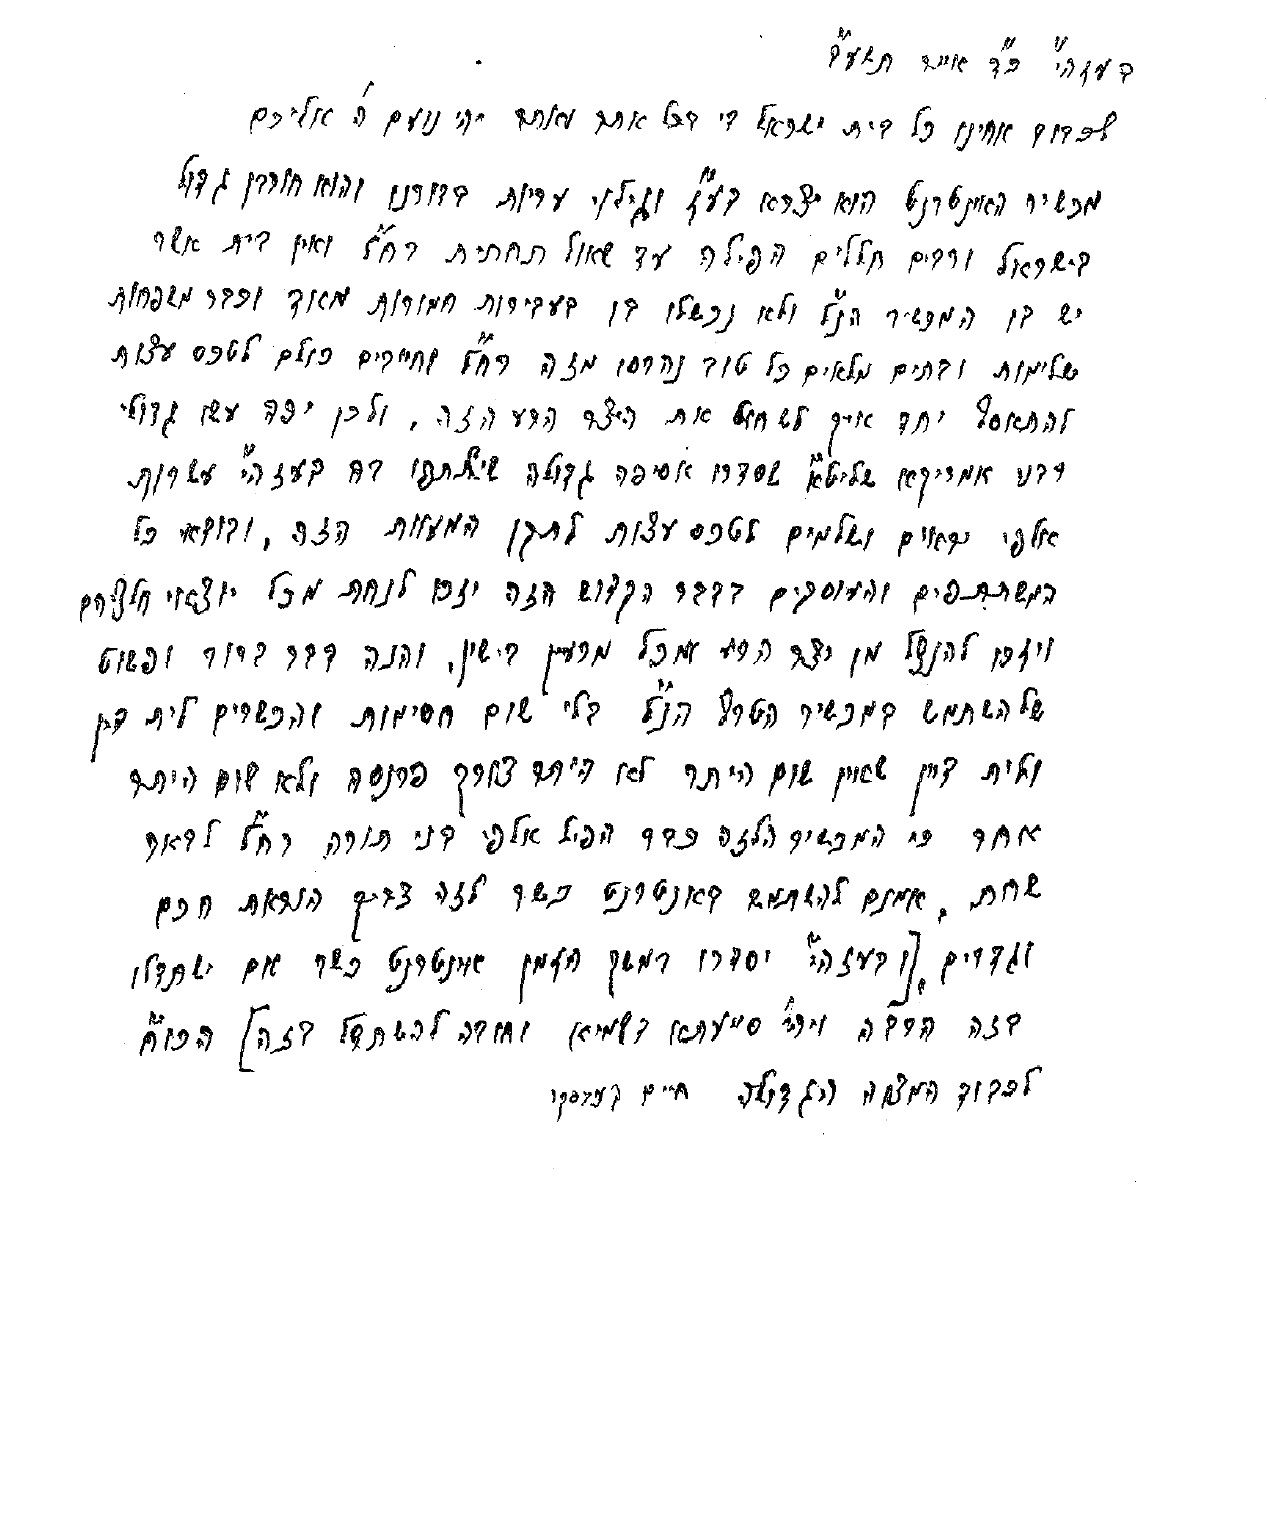 בעזהי"ת כ"ד אייר תשע"ב
לכבוד אחינו כל בית ישראל די בכל אתר ואתר יהי נועם ה' אליכם
מכשיר האינטרנט הוא יצרא דע"ז וגילוי עריות בדורנו והוא חורבן גדול
בישראל ורבים חללים הפילה עד שאול תחתית רח"ל ואין בית אשר
יש בו המכשיר הנ"ל ולא נכשלו בו בעבירות חמורות מאוד וכבר משפחות
שלימות ובתים מלאים כל טוב נהרסו מזה רח"ל וחייבים כולם לטכס עצות
להתאסף יחד איך לשחוט את היצר הרע הזה, ולכן יפה עשו גדולי
רבני אמריקא שליט"א שסדרו אסיפה גדולה שישתתפו בה בעזהי" עשרות
אלפי יראים ושלמים לטכס עצות לתקן המעוות הזה, ובודאי כל
המשתתפים והעוסקים בדבר הקדוש הזה יזכו לנחת מכל יוצאי חלציהם
ויזכו להנצל מן יצר הרע ומכל מרעין בישין, והנה דבר ברור ופשוט
שלהשתמש במכשיר הטרף הנ"ל בלי שום חסימות והכשרים לית דין
ולית דיין שאין שום היתר לא היתר צורך פרנסה ולא שום היתר
אחר כי המכשיר הלזה כבר הפיל אלפי בני תורה רח"ל לבאר
שחת, אמנם להשתמש באנטרנט כשר לזה צריך הוראת חכם
וגדרים [ובעזהי" יסדרו במשך הזמן אינטרנט כשר אם ישתדלו
בזה הרבה ויהי' סייעתא דשמיא וחובה להשתדל בזה] הכו"ח
לכבוד המצוה הגדולה חיים קניבסקי